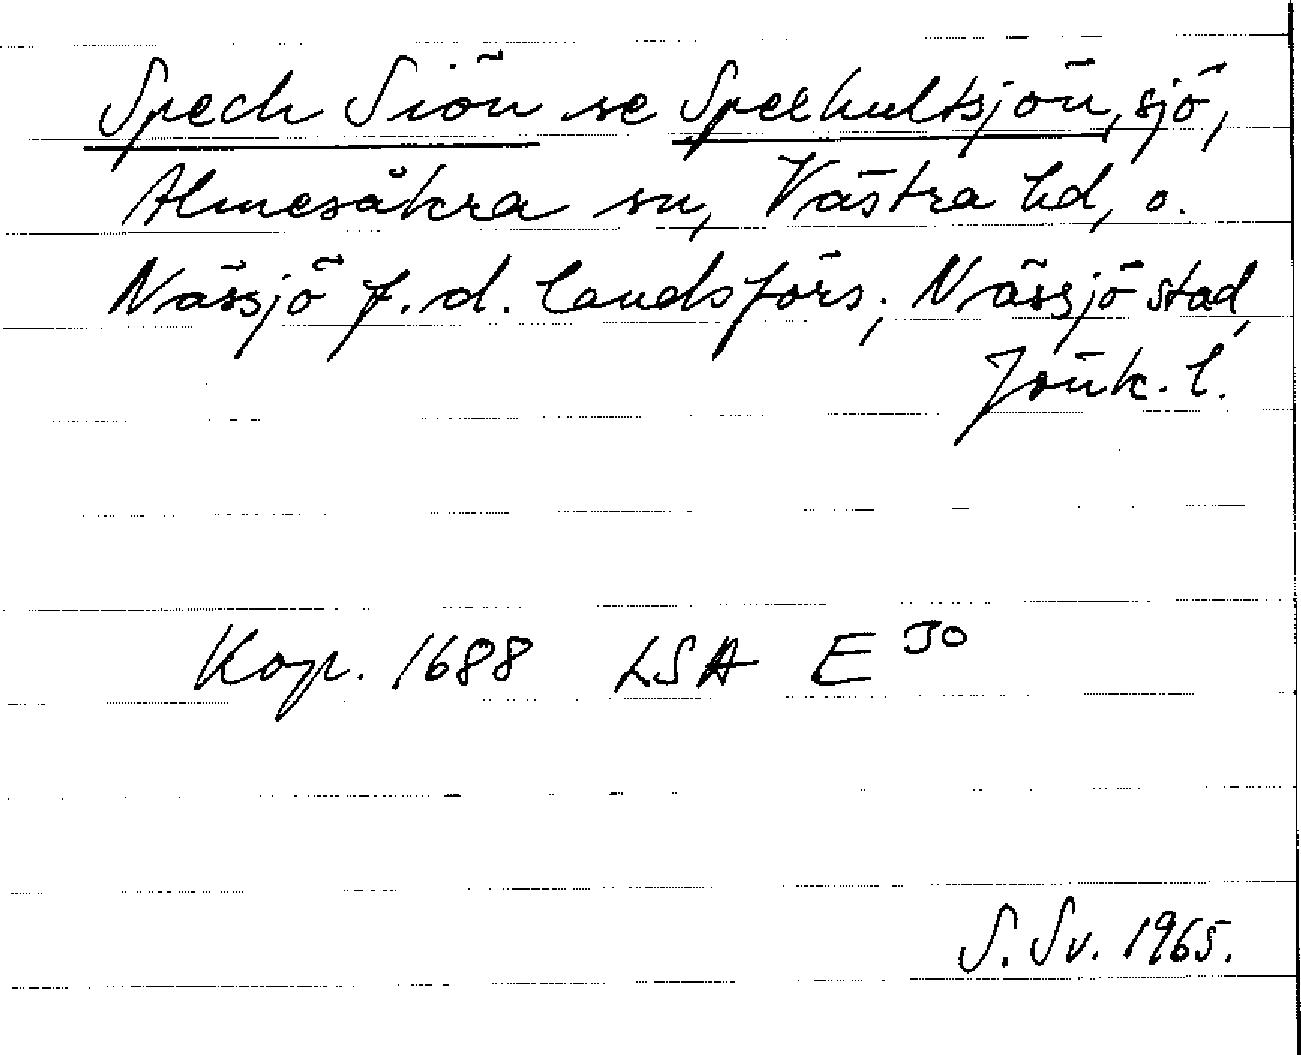 Spech Siön se Speehultsjön, sjö,
Almesåkra sn, Västra hd, o.
Nässjö f.d. landsförs; Nässjö stad,
Jönk. l.
Kop. 1688 LSA E 30
S. Sv. 1965.